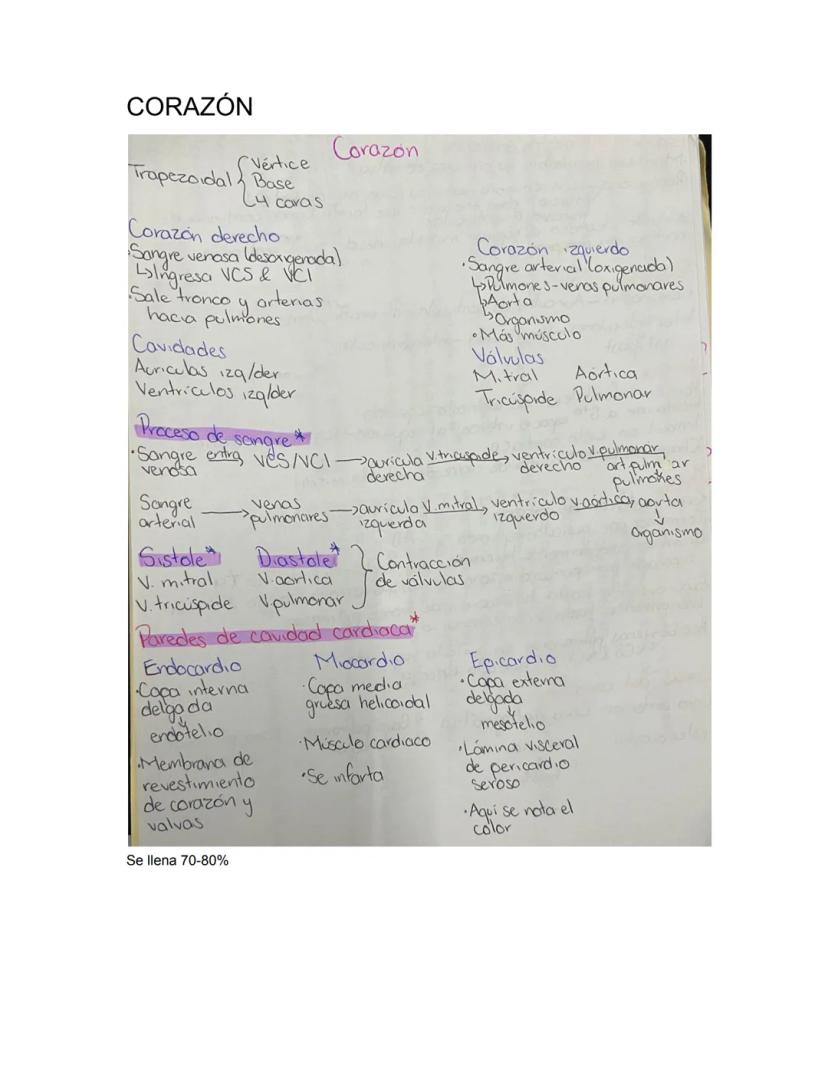 CORAZÓN
Corazón
Trapezoidal { Vértice
Base
4 caras
Corazón derecho
· Sangre venosa (desoxigenada)
↳ Ingresa VCS & VCI
· Sale tronco y arterias
hacia pulmones
Corazón izquierdo
· Sangre arterial (oxigenada)
↳ Pulmones - venas pulmonares
↳ Aorta
↳ Organismo
· Más músculo
Cavidades
Aurículas izq/der
Ventrículos izq/der
Válvulas
Mitral Aórtica
Tricúspide Pulmonar
Proceso de sangre*
· Sangre entra VCS/VCI → aurícula V. tricúspide → ventrículo v. pulmonar
venosa derecha derecho art. pulm
pulmones
Sangre → venas → aurícula V. mitral → ventrículo v. aórtica → aorta
arterial pulmonares izquerda izquerdo ↓
Organismo
Sístole* Diástole* } Contracción
V. mitral V. aórtica de válvulas
V. tricúspide V. pulmonar
Paredes de cavidad cardiaca*
Endocardio
· Capa interna
delgada
↓
endotelio
· Membrana de
revestimiento
de corazón y
valvas
Miocardio
· Capa media
gruesa helicoidal
· Músculo cardiaco
· Se infarta
Epicardio
· Capa externa
delgada
↓
mesotelio
· Lámina visceral
de pericardio
seroso
· Aquí se nota el
color
Se llena 70-80%